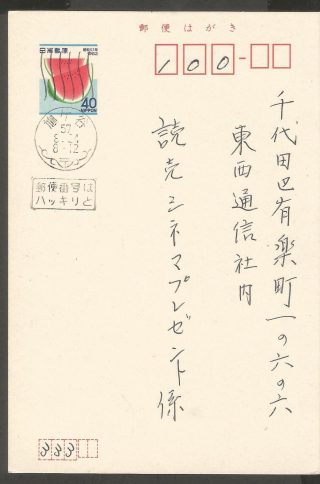 郵便はがき
100-
日本郵便
昭和57年
1982
40
NIPPON
57
8
12
郵便番号は
ハッキリと
千代田区有楽町一の六の六
東西通信社内
読売シネマプレゼント係
333